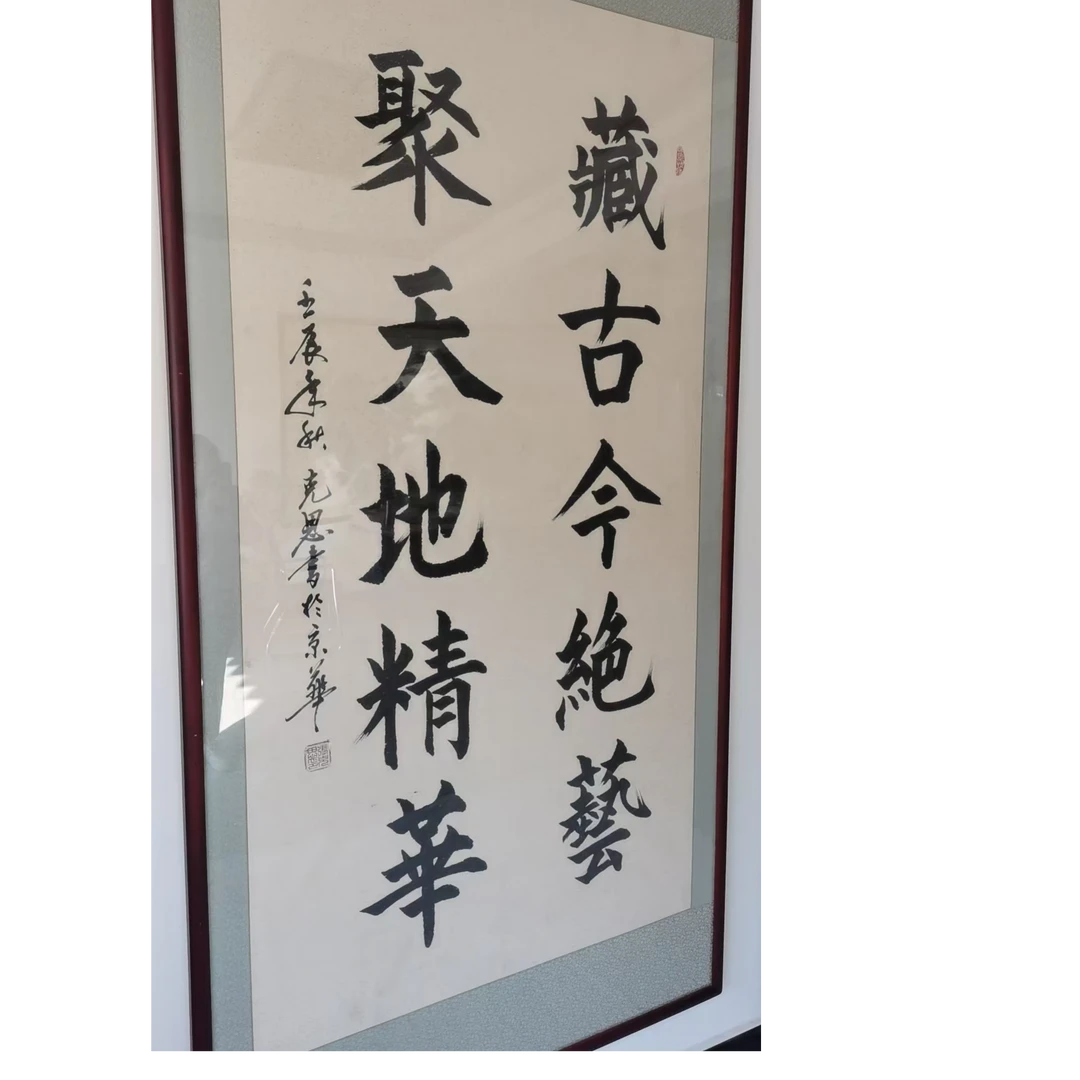 藏古今絕藝
聚天地精華
壬辰年秋 克思書於京華